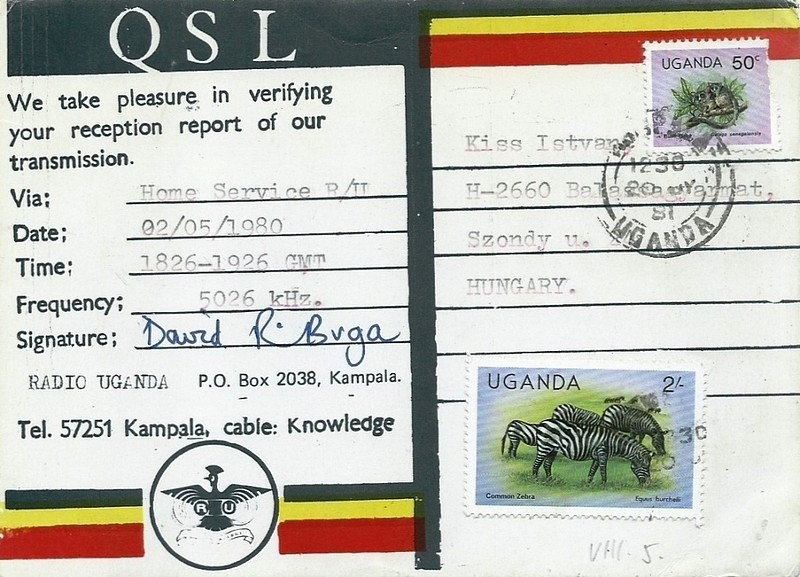 QSL
We take pleasure in verifying
your reception report of our
transmission.
Via; Home Service R/U
Date; 02/05/1980
Time; 1826-1926 GMT
Frequency; 5026 kHz.
Signature; David R. Buga
RADIO UGANDA P.O. Box 2038, Kampala.
Tel. 57251 Kampala, cable: Knowledge
R U
UGANDA 50c
Galago senegalensis
1230
20 MY
81
UGANDA
Kiss Istvan
H-2660 Balassagyarmat,
Szondy u.
HUNGARY.
UGANDA 2/-
Common Zebra Equus burchelli
VIII. 5.